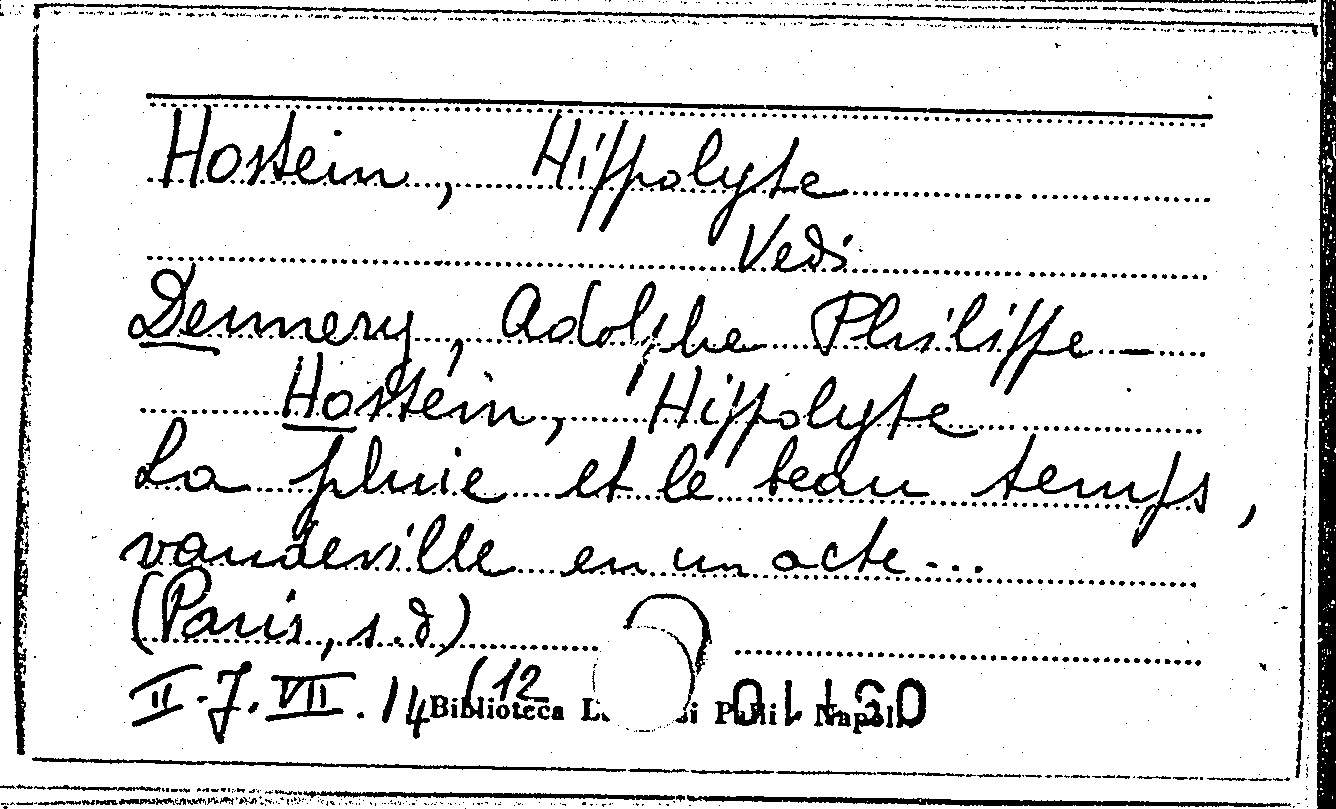 Hostein, Hippolyte
Vedi
Dennery, Adolphe Philippe —
Hostein, Hippolyte
La pluie et le beau temps,
vaudeville en un acte...
(Paris, s.d)
II.J.VII.14(12
Biblioteca L. si P Napoli